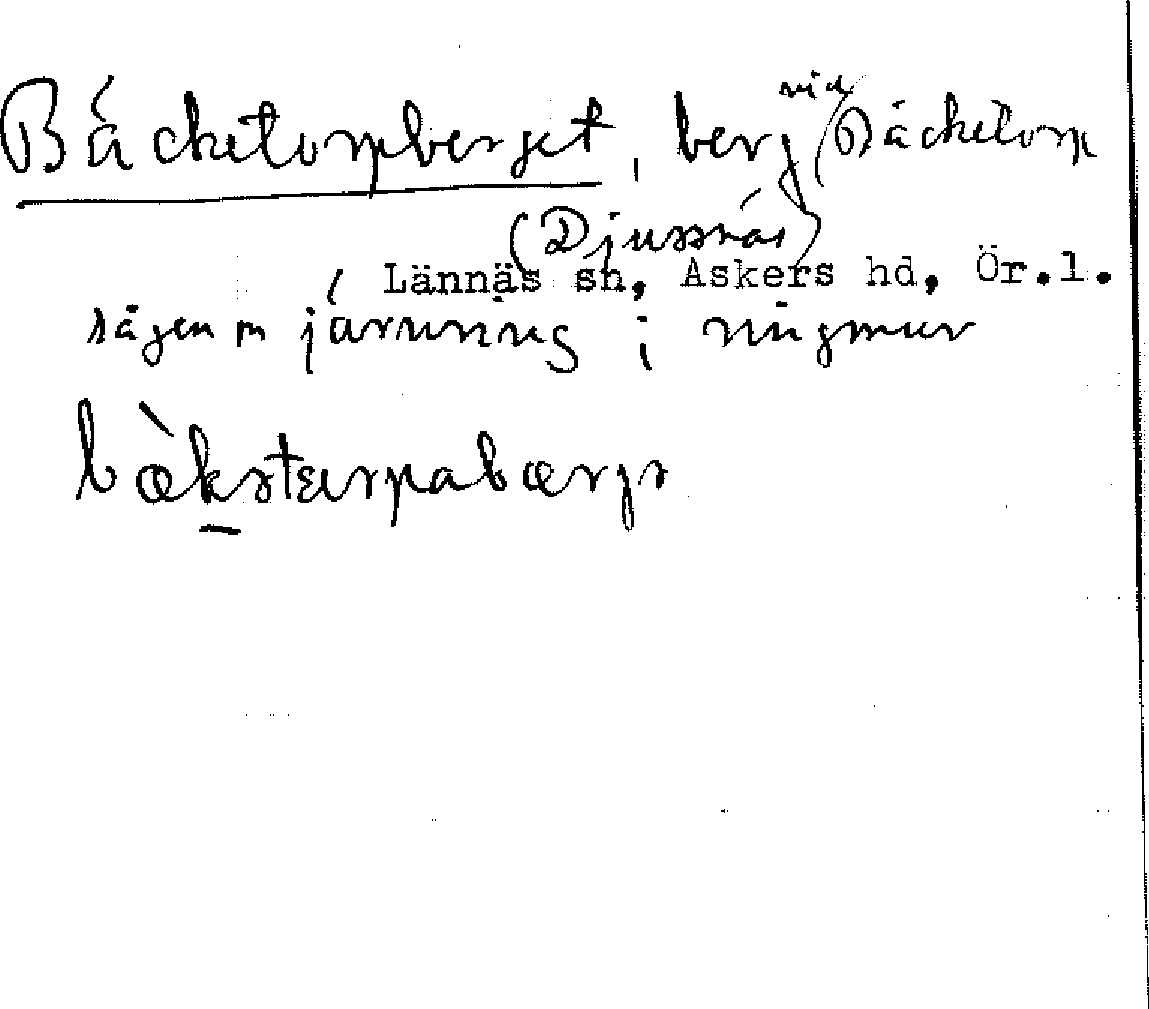 Bäcketorpberget, berg vid Bäcketorp
(Djussnäs)
Lännäs sn, Askers hd, Ör.l.
sägen m järnring i ringmur
bæ̀kstɛrpabærjə